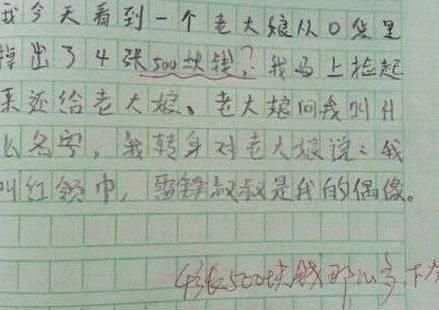 我今天看到一个老大娘从口袋里
掉出了4张500块钱，我马上捡起
来还给老大娘、老大娘问我叫什
么名字，我转身对老大娘说：我
叫红领巾，雷锋叔叔是我的偶像。
4张500块钱那么多，下次